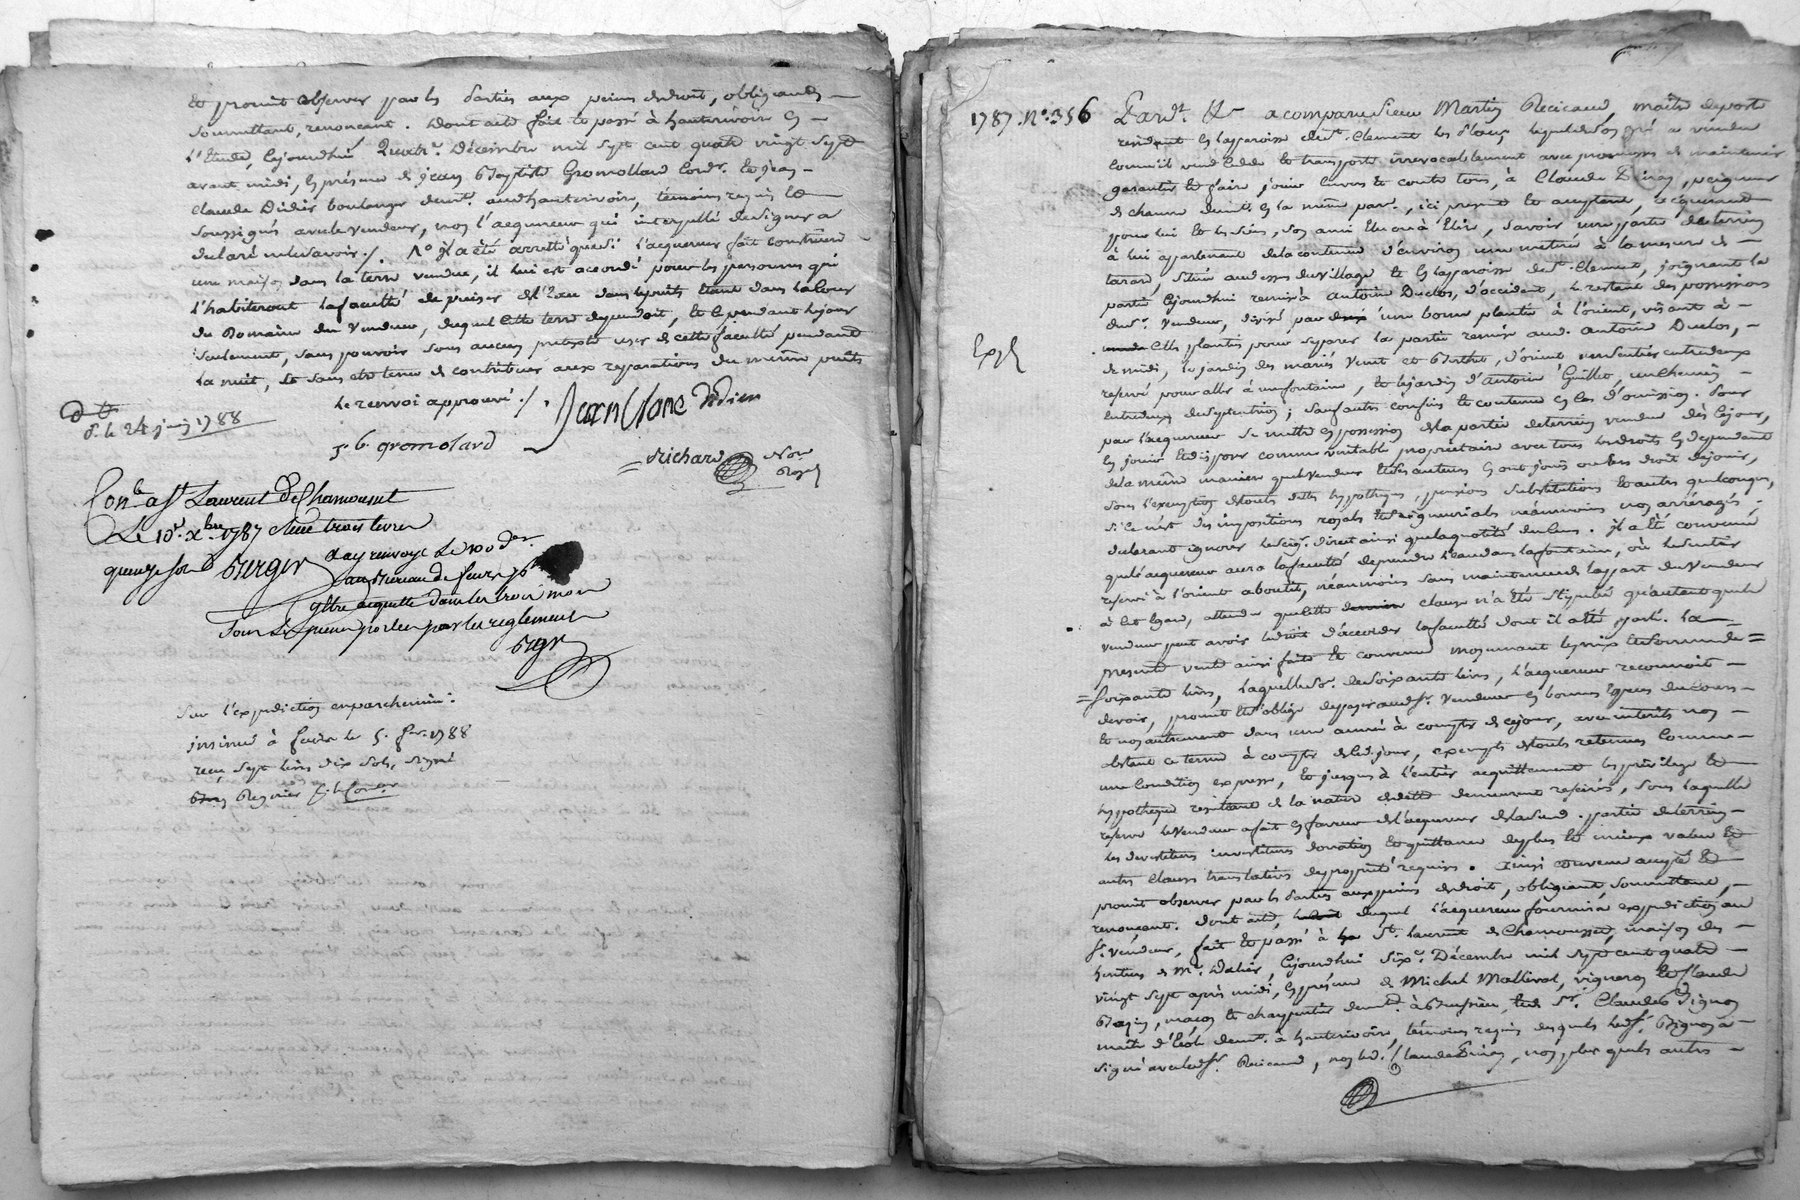 et promit observer par les parties aux peines de droit, obligeants
soumittant, renonçant. Dont acte fait et passé à hauterivoire en
l'Etude, cejourdhui quatr.e Décembre mil sept cent quatre vingt sept
avant midi, en présence de jean Baptiste Gromollard cord.r et jean
Claude Didier boulanger demt. aud hauterivoire, témoins requis et
soussignés avec le vendeur, non l'acquereur qui interpellé de signer a
declaré ne le savoir ./. N.o il a été arretté que si l'acquereur fait construire
une maison dans la terre vendue, il lui est accordé pour les personnes qui
l'habiteront la faculté de puiser de l'Eau dans le puits étant dans la Cour
du Domaine du vendeur, duquel cette terre dependoit, et ce pendant le jour
seulement, sans pouvoir sous aucun pretexte user de cette faculté pendant
la nuit, et sans etre tenu de contribuer aux reparations du meme puits
le renvoi approuvé ./.
Jean Clane Didien
D. le 24 juin 1788
j. b. gromolard
richard Not.
Royal
Con.le a St. Laurent De Chamousset
Le 10.e Xbre 1787 reçu trois livres
quinze sols Berger
au Bureau de feurs p.
être acquitté dans les trois mois
Sous les peines portées par les reglements
Brgr
Sur l'expedition en parchemin:
insinué à feurs le 5. fer. 1788
reçu sept livres dix sols, signé
1787. N.o 356 Pardt. &c a comparu sieur Martin Recicaud, maître de poste
resident en la paroisse de St. Clement les places, lequel de son gré a vendu
comme il vend cede et transporte irrevocablement avec promesses de maintenir
garantir et faire jouir envers et contre tous, à Claude Pinay, peigneur
de chanvre demt. en la même par., ici present et acceptant, acquereur
pour lui et les siens, son ami elu ou à élire, savoir une partie de terrein
à lui appartenant de la contenue d'environ une metrée à la mesure de
tarare, située au dessus du village et en la paroisse de St. Clement, joignant la
partie cejourdhui remise à Antoine Duclos, d'occident, le restant des possessions
dud.r vendeur, divisé par une borne plantée à l'orient, visant à
celle plantée pour separer la partie remise aud. antoine Duclos,
de midi, le jardin des mariés Venet et Berthet, d'orient un sentier entredeux
reservé pour aller à une fontaine, et le jardin d'antoine Guillot, un chemin
entredeux de septentrion; sauf autres confins et contenue en cas d'omission. Pour
par l'acquereur se mettre en possession de la partie de terrein vendue dès ce jour,
en jouir et disposer comme veritable proprietaire avec tous les droits en dependant
de la même maniere que le vendeur et ses auteurs en ont joui ou eu droit de jouir,
Exp.é
sous l'exemption de toutes dettes hypotheques, pensions substitutions et autres quelconques,
si ce n'est des impositions royales et seigneuriales neanmoins non arréragés,
declarant ignorer le seig.r direct ainsi que la quotité du cens. il a été convenu
que l'acquereur aura la faculté de prendre l'eau dans la fontaine, où le sentier
reservé à l'orient aboutit, néanmoins sans maintenue de la part du vendeur
à cet égard, attendu que cette clause n'a été stipulée qu'autant que le
vendeur peut avoir le droit d'accorder la faculté dont il a été parlé. La
presente vente ainsi faite et convenue moyennant le prix et somme de
= soixante livres, laquelle so. de soixante livres, l'acquereur reconnoit
devoir, promet et s'oblige de payer aud.sr. vendeur en bonnes especes du cours
et non autrement dans une année à compter de ce jour, avec interets non
obstant ce terme à compter de ced. jour, exempts de toute retenue comme
une condition expresse, et jusques à l'entier acquittement les privileges et
hypotheque resultant de la nature de dette demeurent reservés, sous laquelle
reserve le vendeur a fait en faveur de l'acquereur de la susd. partie de terrein
les devestitures investitures donation et quittance de plus et mieux value et
autres clauses translatives de propriété requises. Ainsi convenu accepté et
promit observer par les parties aux peines de droit, obligeant soumittant,
renonçant. Dont acte, duquel l'acquereur fournira expedition au
sr. vendeur, fait et passé à St. Laurent de Chamousset, maison des
heritiers de Mr. Dalier, cejourdhui six.e Décembre mil sept cent quatre
vingt sept après midi, en présence de Michel Mallival, vigneron et Claude
Bazin, maçon et charpentier demt. à Brussieu, et de Sr. Claude Bignon
maître d'école demt. à hauterivoire, témoins requis desquels led.sr. Bignon a
signé avec led.sr. Recicaud, non led. Claude Pinay, non plus que les autres